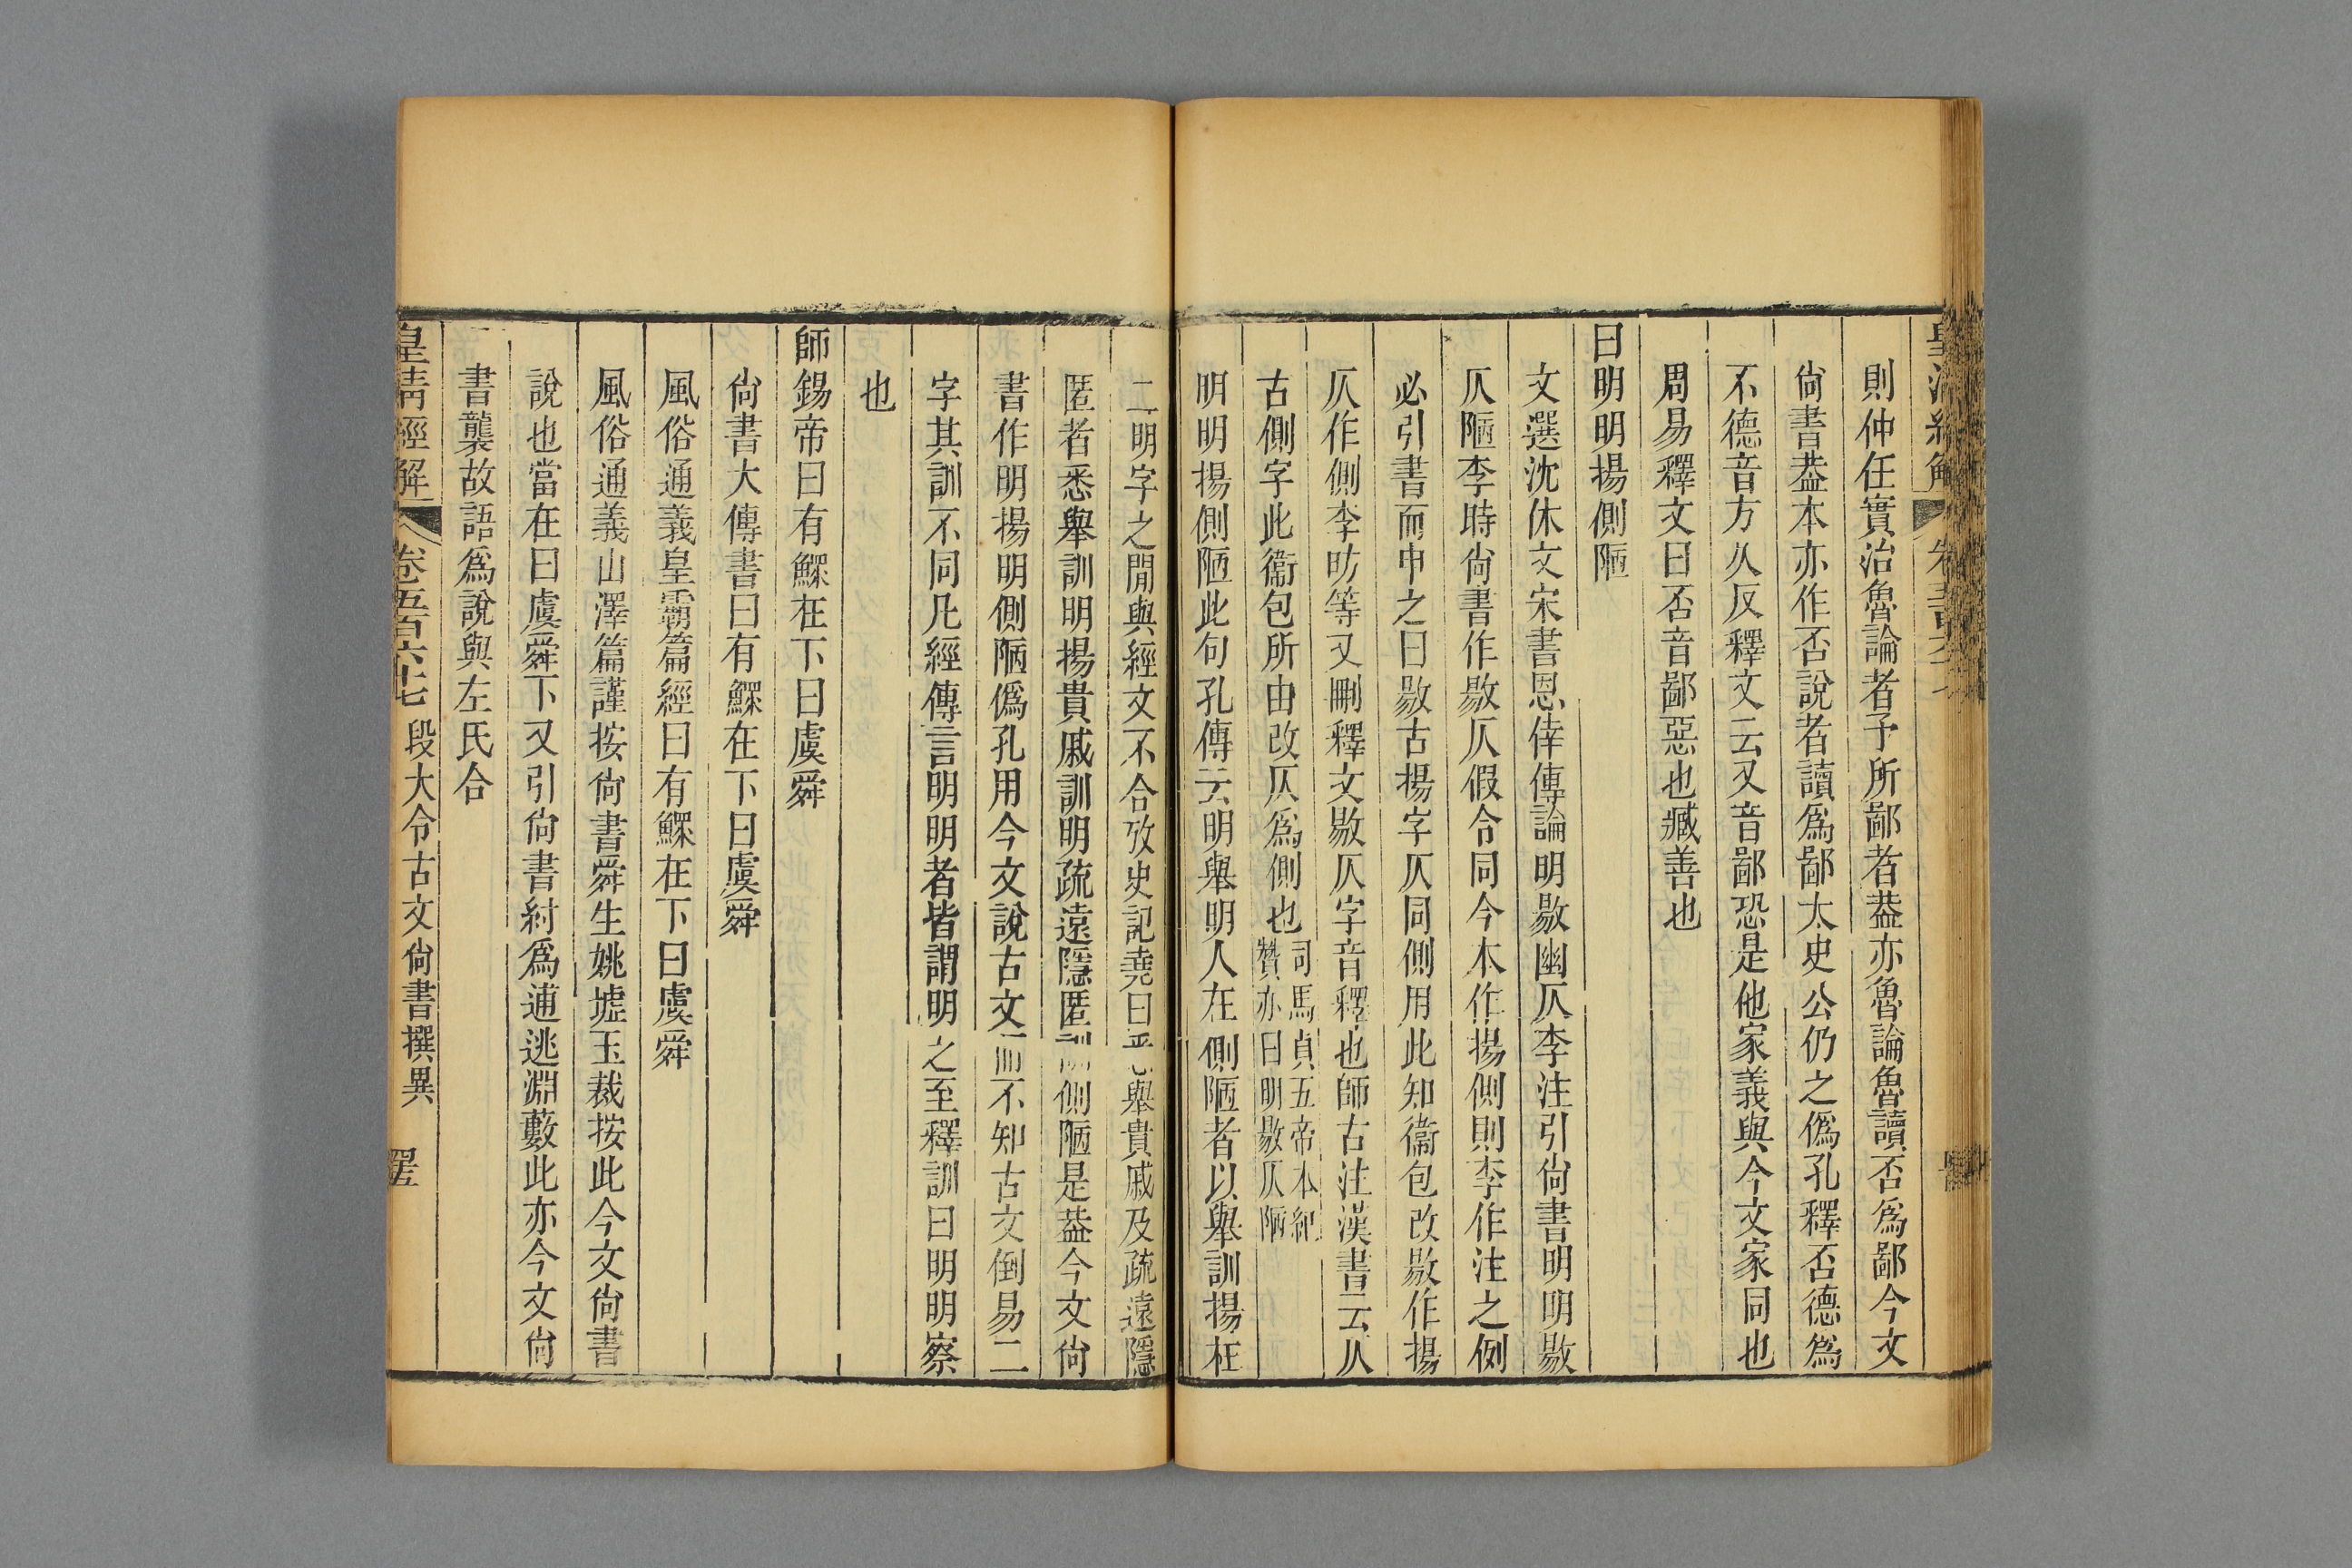 則仲任實治魯論者予所鄙者葢亦魯論魯讀否爲鄙今文
尙書葢本亦作否說者讀爲鄙太史公仍之僞孔釋否德爲
不德音方久反釋文云又音鄙恐是他家義與今文家同也
周易釋文曰否音鄙惡也臧善也
曰明明揚側陋
文選沈休文宋書恩倖傳論明敭幽仄李注引尙書明明敭
仄陋李時尙書作敭仄假令同今本作揚側則李作注之例
必引書而申之曰敭古揚字仄同側用此知衞包改敭作揚
仄作側李昉等又刪釋文敭仄字音釋也師古注漢書云仄
古側字此衞包所由改仄爲側也司馬貞五帝本紀
贊亦曰明敭仄陋
明明揚側陋此句孔傳云明舉明人在側陋者以舉訓揚在
二明字之閒與經文不合攷史記堯曰悉舉貴戚及疏遠隱
匿者悉舉訓明揚貴戚訓明疏遠隱匿訓側陋是葢今文尙
書作明揚明側陋僞孔用今文說古文而不知古文倒易二
字其訓不同凡經傳言明明者皆謂明之至釋訓曰明明察
也
師錫帝曰有鰥在下曰虞舜
尙書大傳書曰有鰥在下曰虞舜
風俗通義皇霸篇經曰有鰥在下曰虞舜
風俗通義山澤篇謹按尙書舜生姚墟玉裁按此今文尙書
說也當在曰虞舜下又引尙書紂爲逋逃淵藪此亦今文尙
書襲故語爲說與左氏合
皇淸經解 卷五百六十七 段大令古文尙書撰異